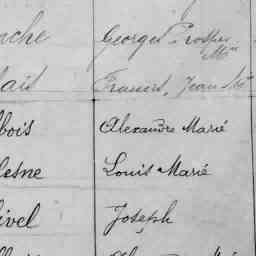 Georges Prosper
Mie
Francis, Jean Mie
bois Alexandre Marié
esne Louis Marié
ivel Joseph